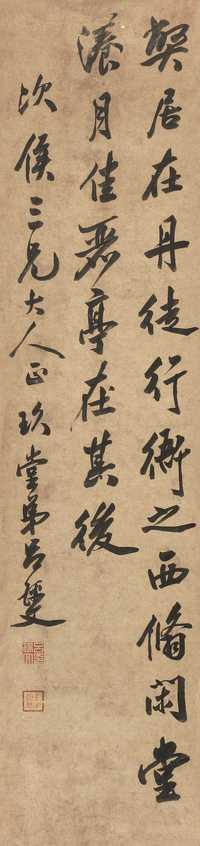 弊居在丹徒行衙之西翛閑堂
漾月佳麗亭在其後
次侯三兄大人正 玖堂弟呂